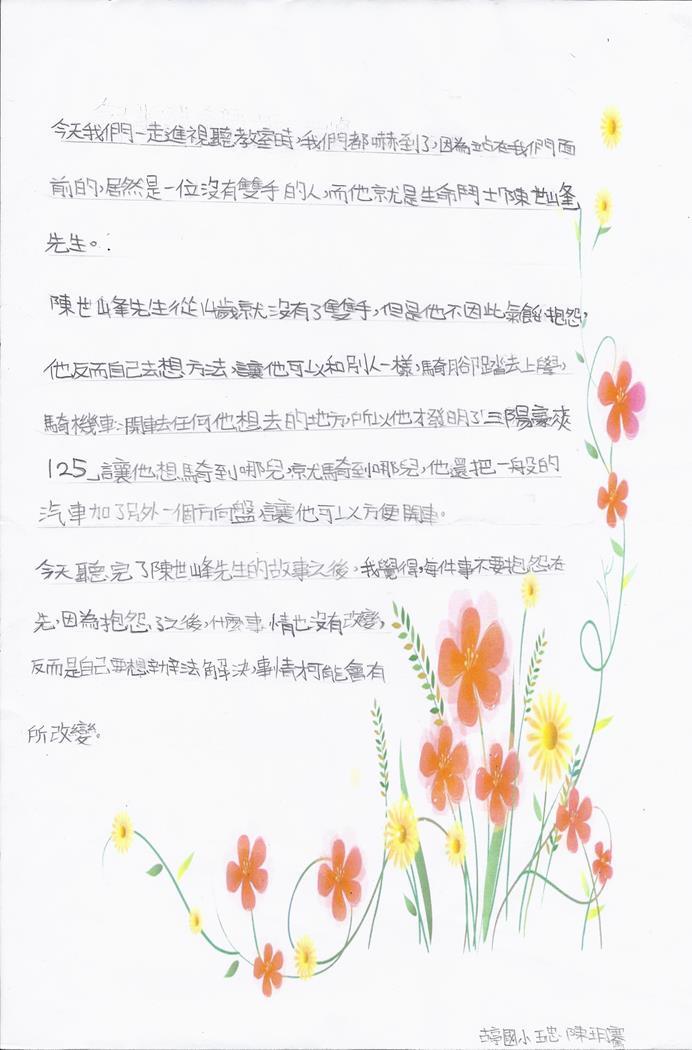 今天我們一走進視聽教室時，我們都嚇到了，因為站在我們門面
前的，居然是一位沒有雙手的人，而他就是生命鬥士「陳世峰」
先生。
陳世峰先生從14歲就沒有了雙手，但是他不因此氣餒、抱怨，
他反而自己去想方法，讓他可以和別人一樣，騎腳踏去上學，
騎機車、開車去任何他想去的地方，所以他才發明了「三陽豪爽
125」讓他想騎到哪兒，就騎到哪兒，他還把一般的
汽車加了另外一個方向盤，讓他可以方便開車。
今天聽完了陳世峰先生的故事之後，我覺得，每件事不要抱怨在
先，因為抱怨了之後，什麼事情也沒有改變，
反而是自己要想辦法解決，事情才可能會有
所改變。
國小 五忠 陳玥